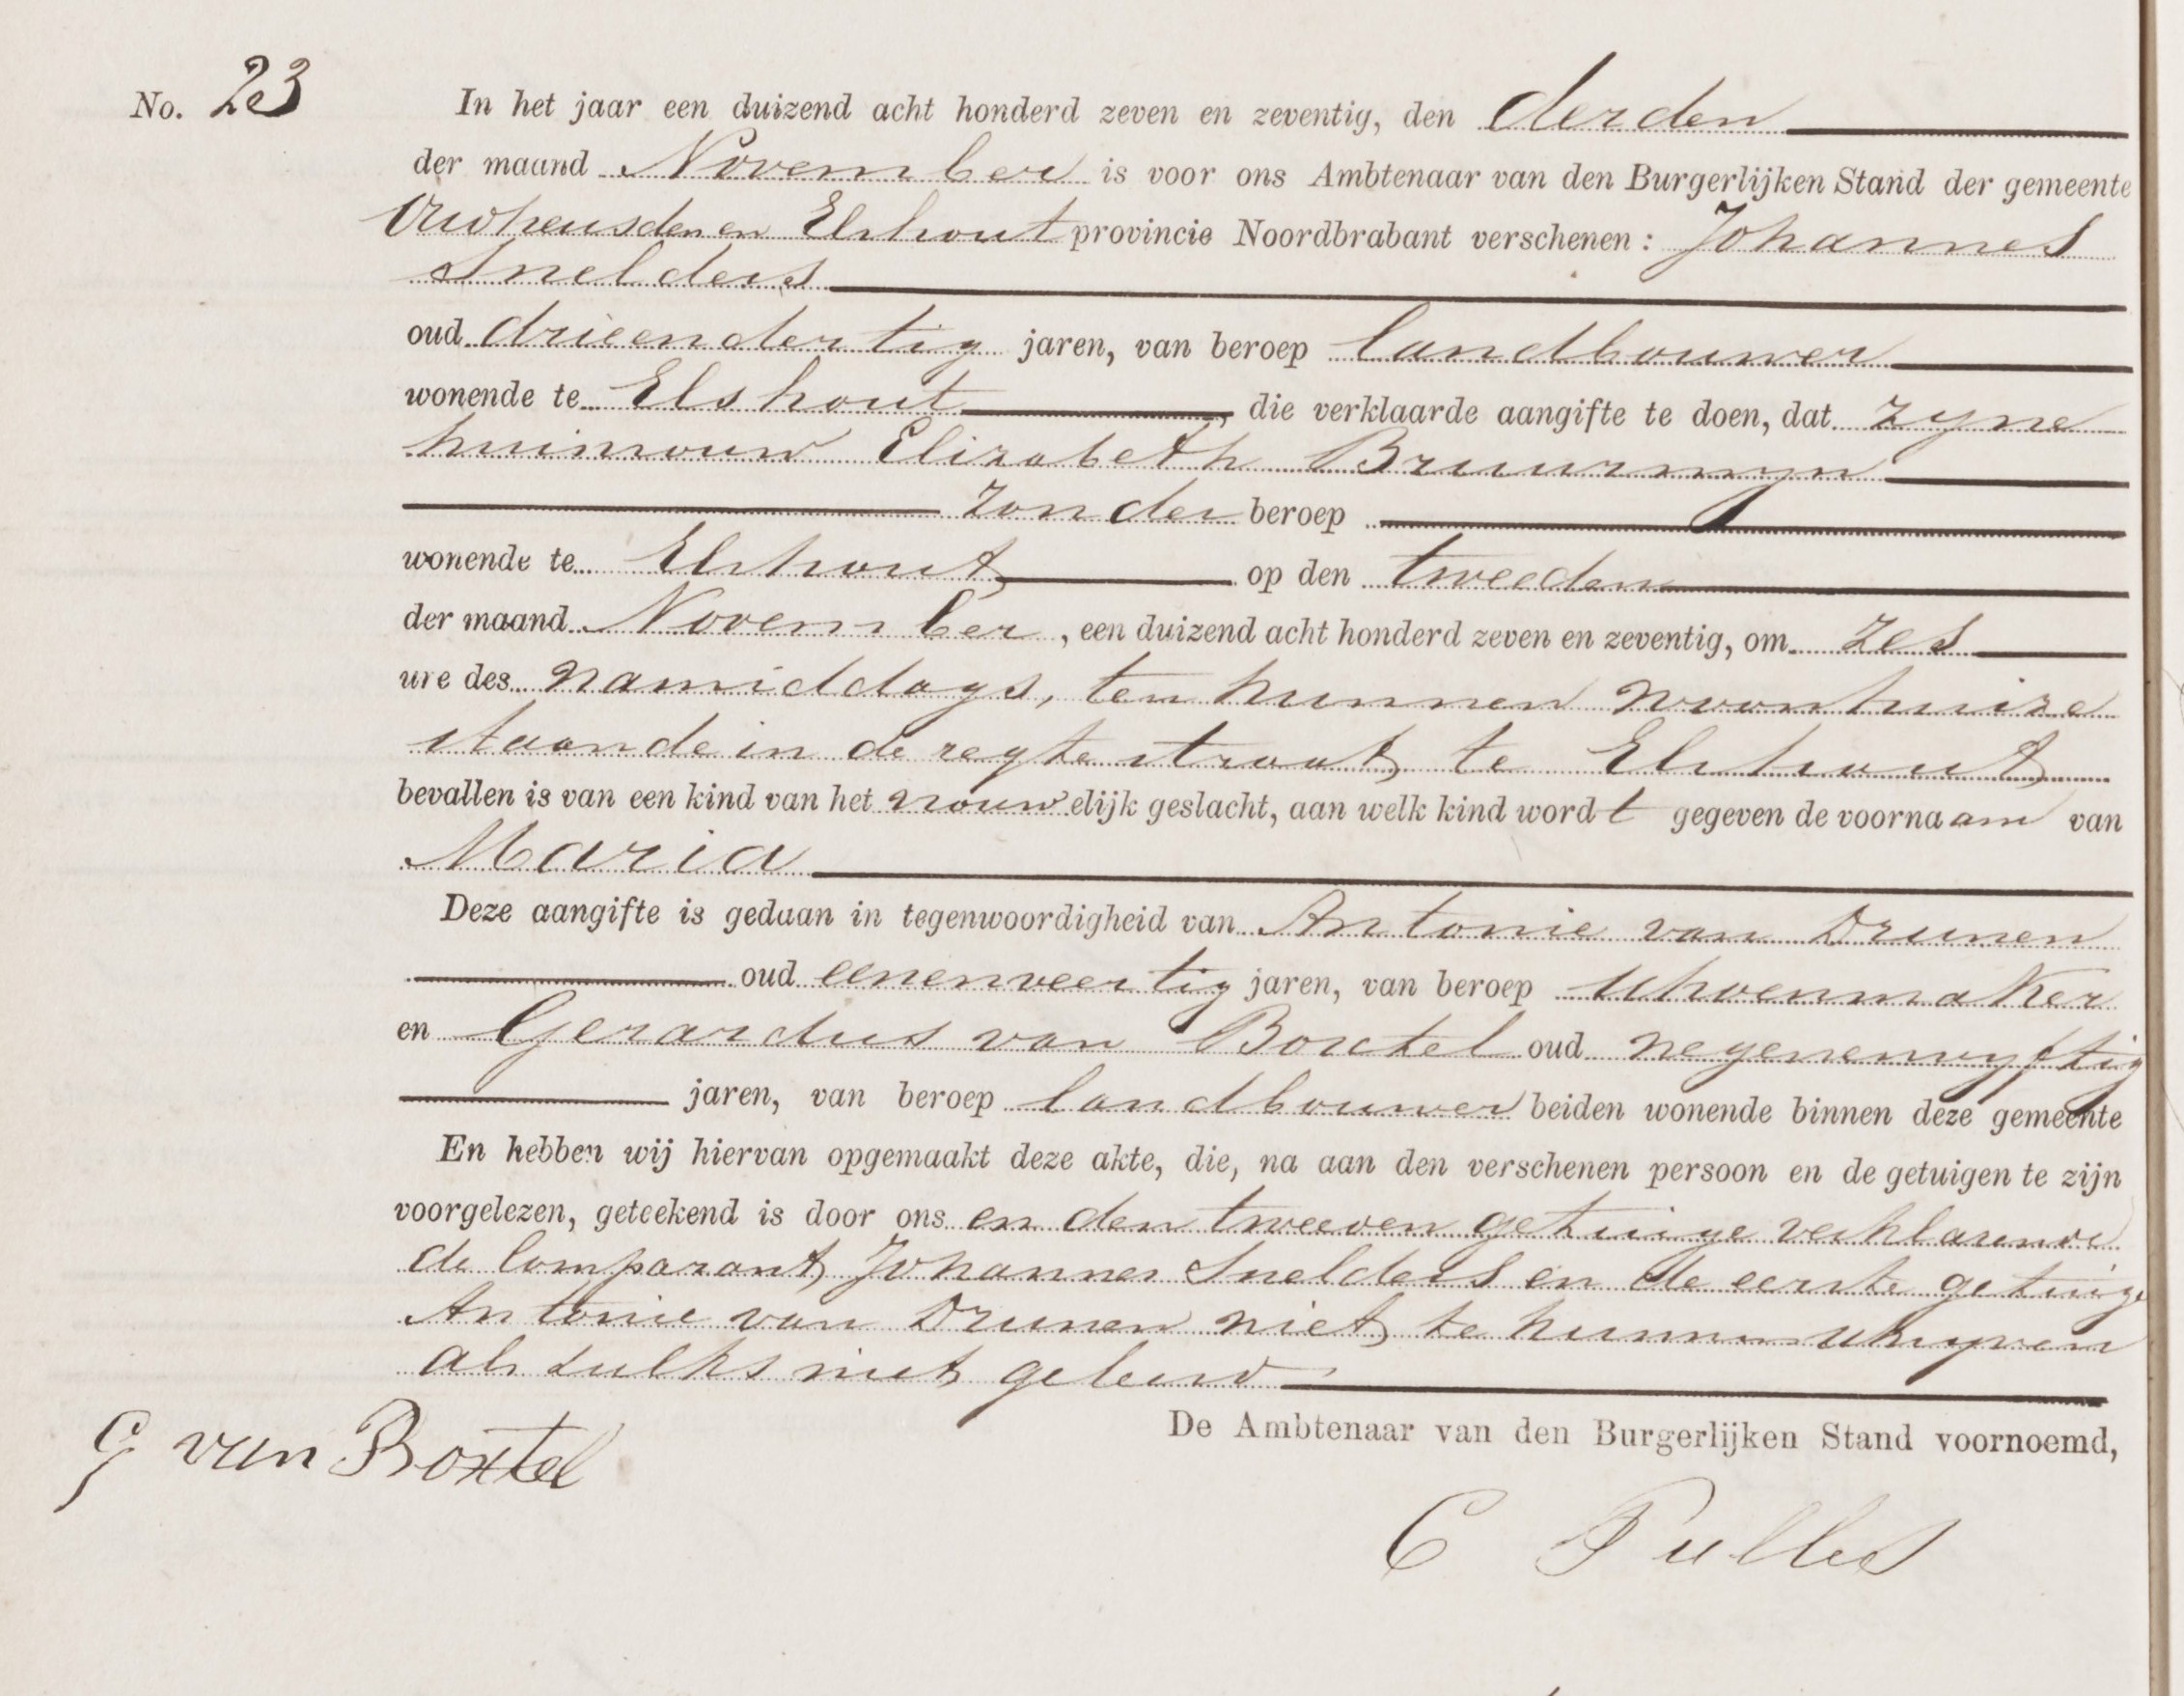 No. 23
In het jaar een duizend acht honderd zeven en zeventig, den derden
der maand November is voor ons Ambtenaar van den Burgerlijken Stand der gemeente
Oudheusden en Elshout provincie Noordbrabant verschenen: Johannes
Snelders
oud drieendertig jaren, van beroep landbouwer
wonende te Elshout, die verklaarde aangifte te doen, dat zyne
huisvrouw Elizabeth Bruurmyn
zonder beroep
wonende te Elshout op den tweeden
der maand November, een duizend acht honderd zeven en zeventig, om zes
ure des namiddags, ten hunnen woonhuize
staande in de regte straat te Elshout
bevallen is van een kind van het vrouwelijk geslacht, aan welk kind wordt gegeven de voornaam van
Maria
Deze aangifte is gedaan in tegenwoordigheid van Antonie van Drunen
oud eenenveertig jaren, van beroep schoenmaker
en Gerardus van Boxtel oud negenenvyftig
jaren, van beroep landbouwer beiden wonende binnen deze gemeente
En hebben wij hiervan opgemaakt deze akte, die, na aan den verschenen persoon en de getuigen te zijn
voorgelezen, geteekend is door ons en den tweeden getuige verklarende
de Comparant Johannes Snelders en de eerste getuige
Antonie van Drunen niet te kunnen schryven
als zulks niet geleerd
De Ambtenaar van den Burgerlijken Stand voornoemd,
G van Boxtel
C Pulles